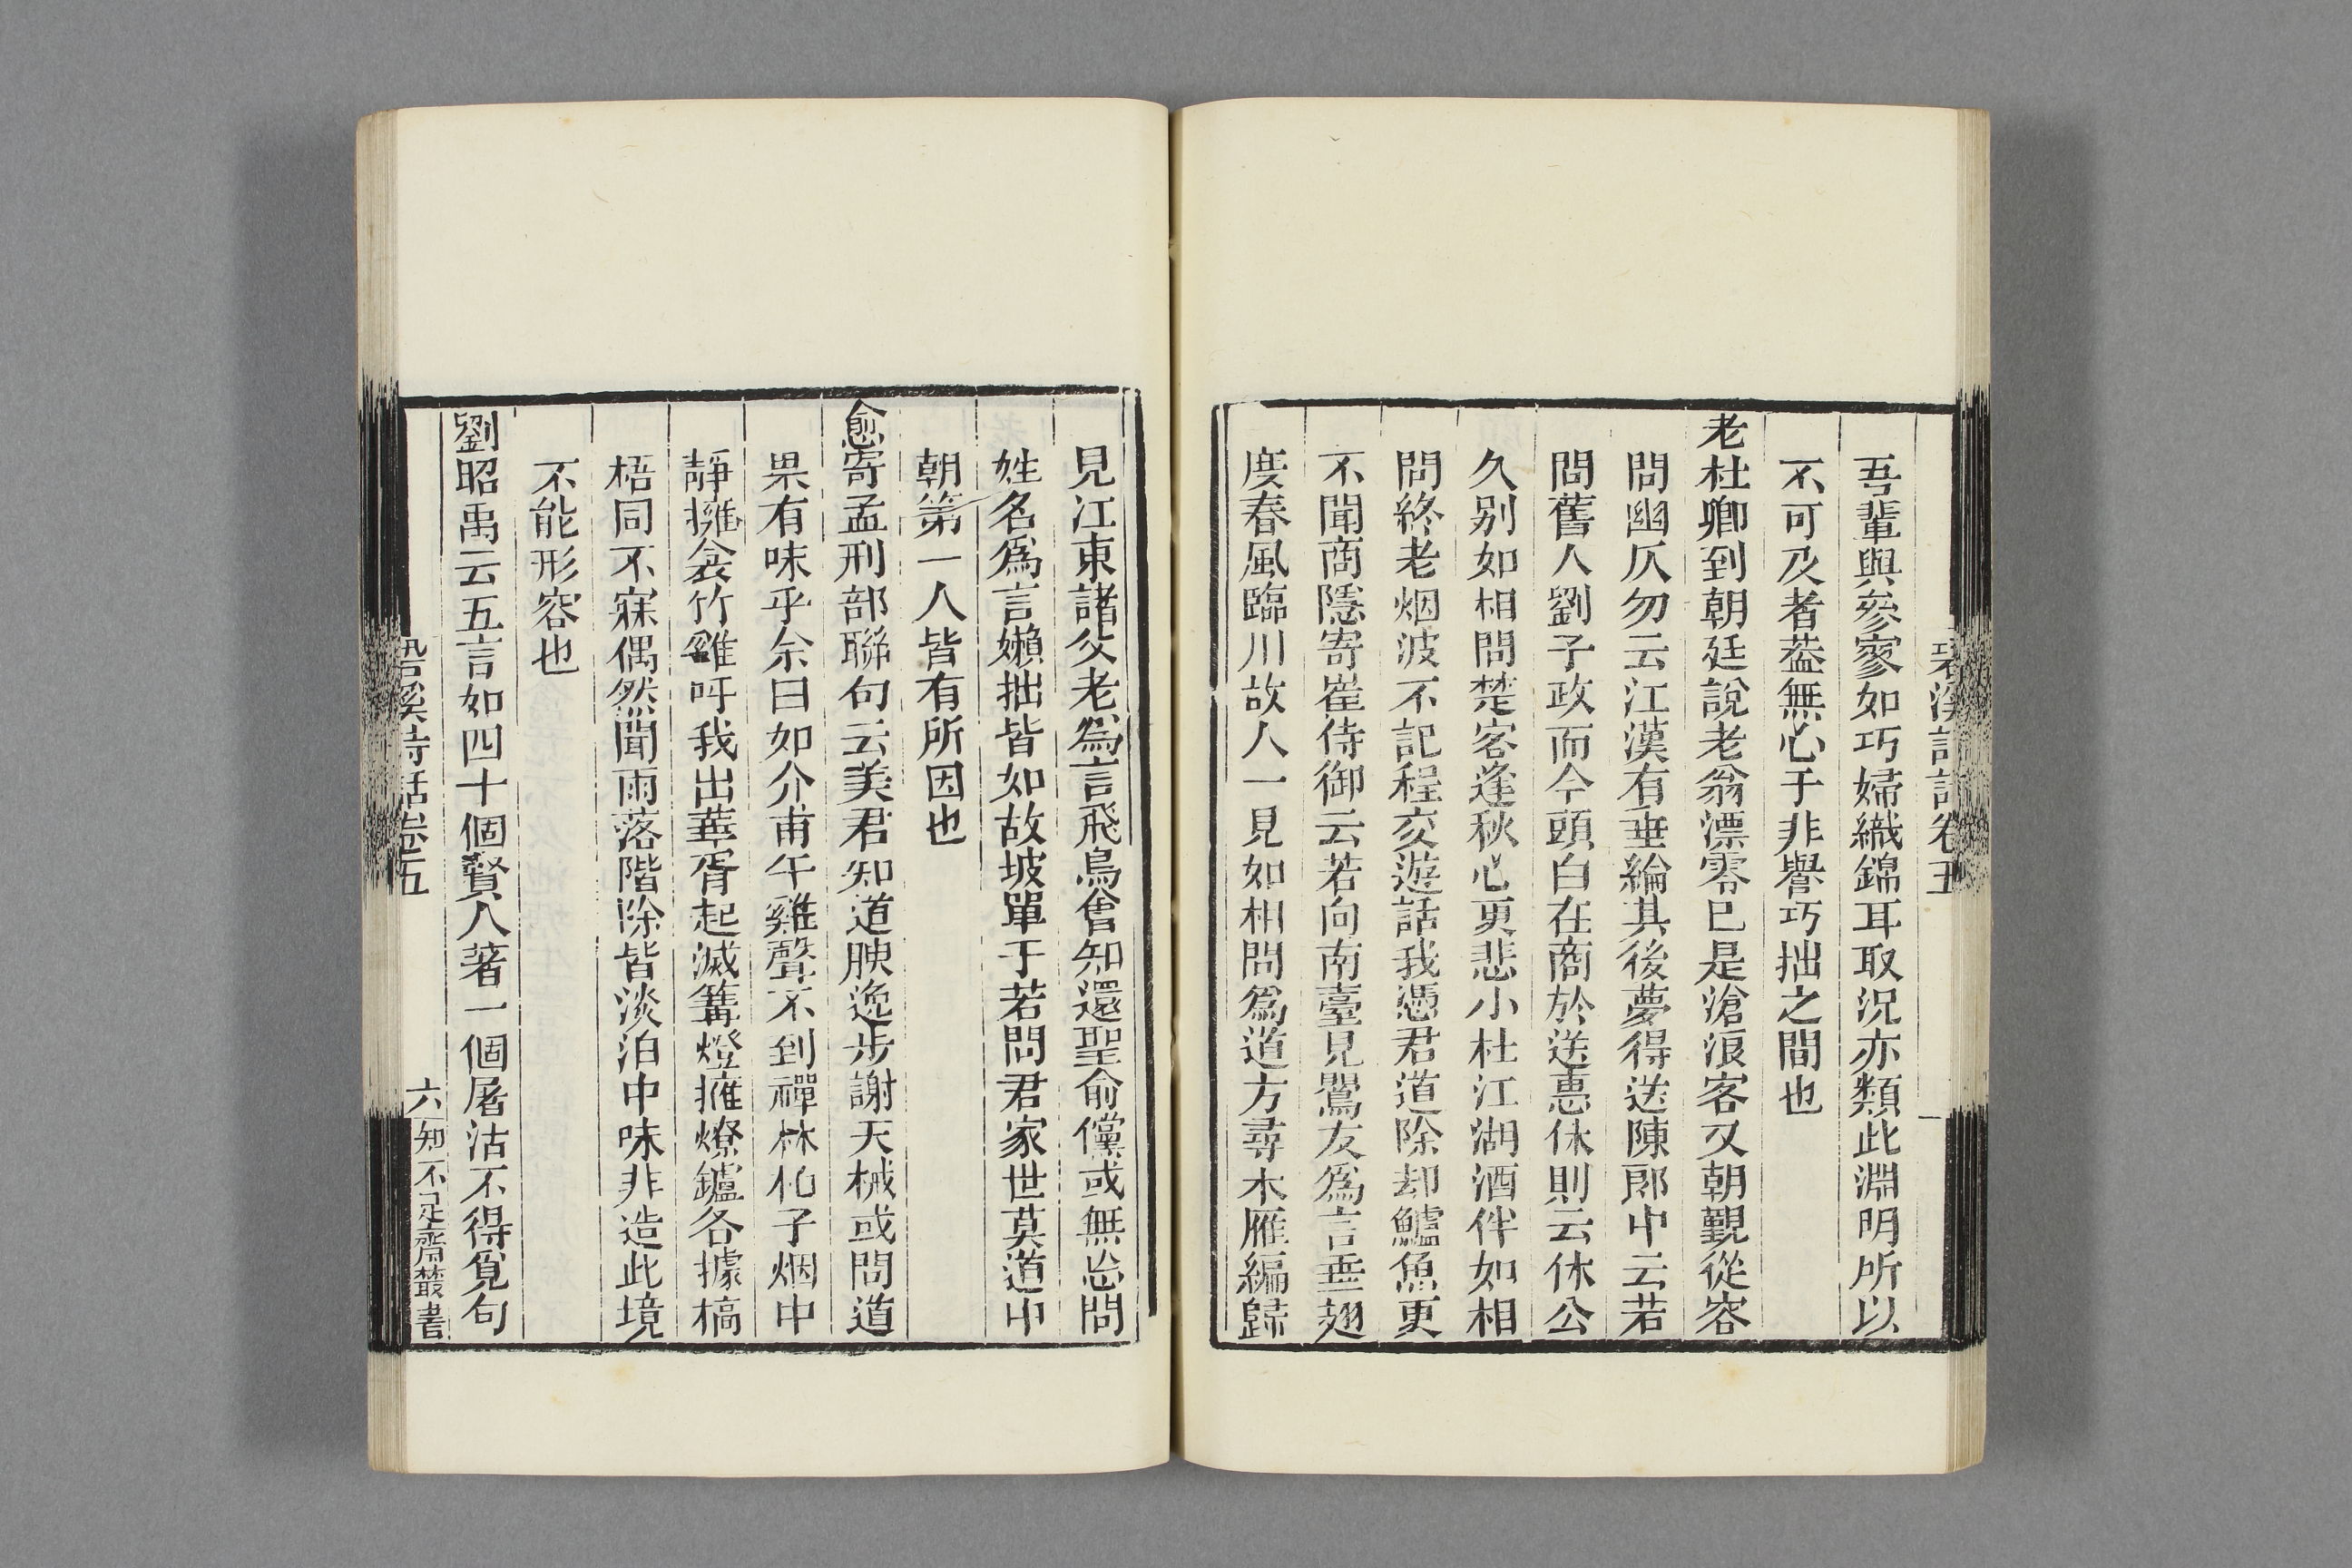 䂬溪詩話卷五
吾輩與參寥如巧婦織錦耳取況亦類此淵明所以
不可及者葢無心于非譽巧拙之間也
老杜卿到朝廷說老翁漂零已是滄浪客又朝覲從容
問幽仄勿云江漢有垂綸其後夢得送陳郎中云若
問舊人劉子政而今頭白在商於送惠休則云休公
久别如相問楚客逢秋心更悲小杜江湖酒伴如相
問終老烟波不記程交遊話我憑君道除却鱸魚更
不聞商隱寄崔侍御云若向南臺見鶯友爲言垂翅
度春風臨川故人一見如相問爲道方尋木雁編歸
見江東諸父老爲言飛鳥會知還聖俞儻或無忘問
姓名爲言嬾拙皆如故坡單于若問君家世莫道中
朝第一人皆有所因也
愈寄孟刑部聯句云美君知道腴逸步謝天械或問道
果有味乎余曰如介甫午雞聲不到禪林柏子烟中
靜擁衾竹雞呼我出華胥起滅篝燈擁燎鑪各據槁
梧同不寐偶然聞雨落階除皆淡泊中味非造此境
不能形容也
劉昭禹云五言如四十個賢人著一個屠沽不得覓句
䂬溪詩話卷五
六
知不足齋叢書